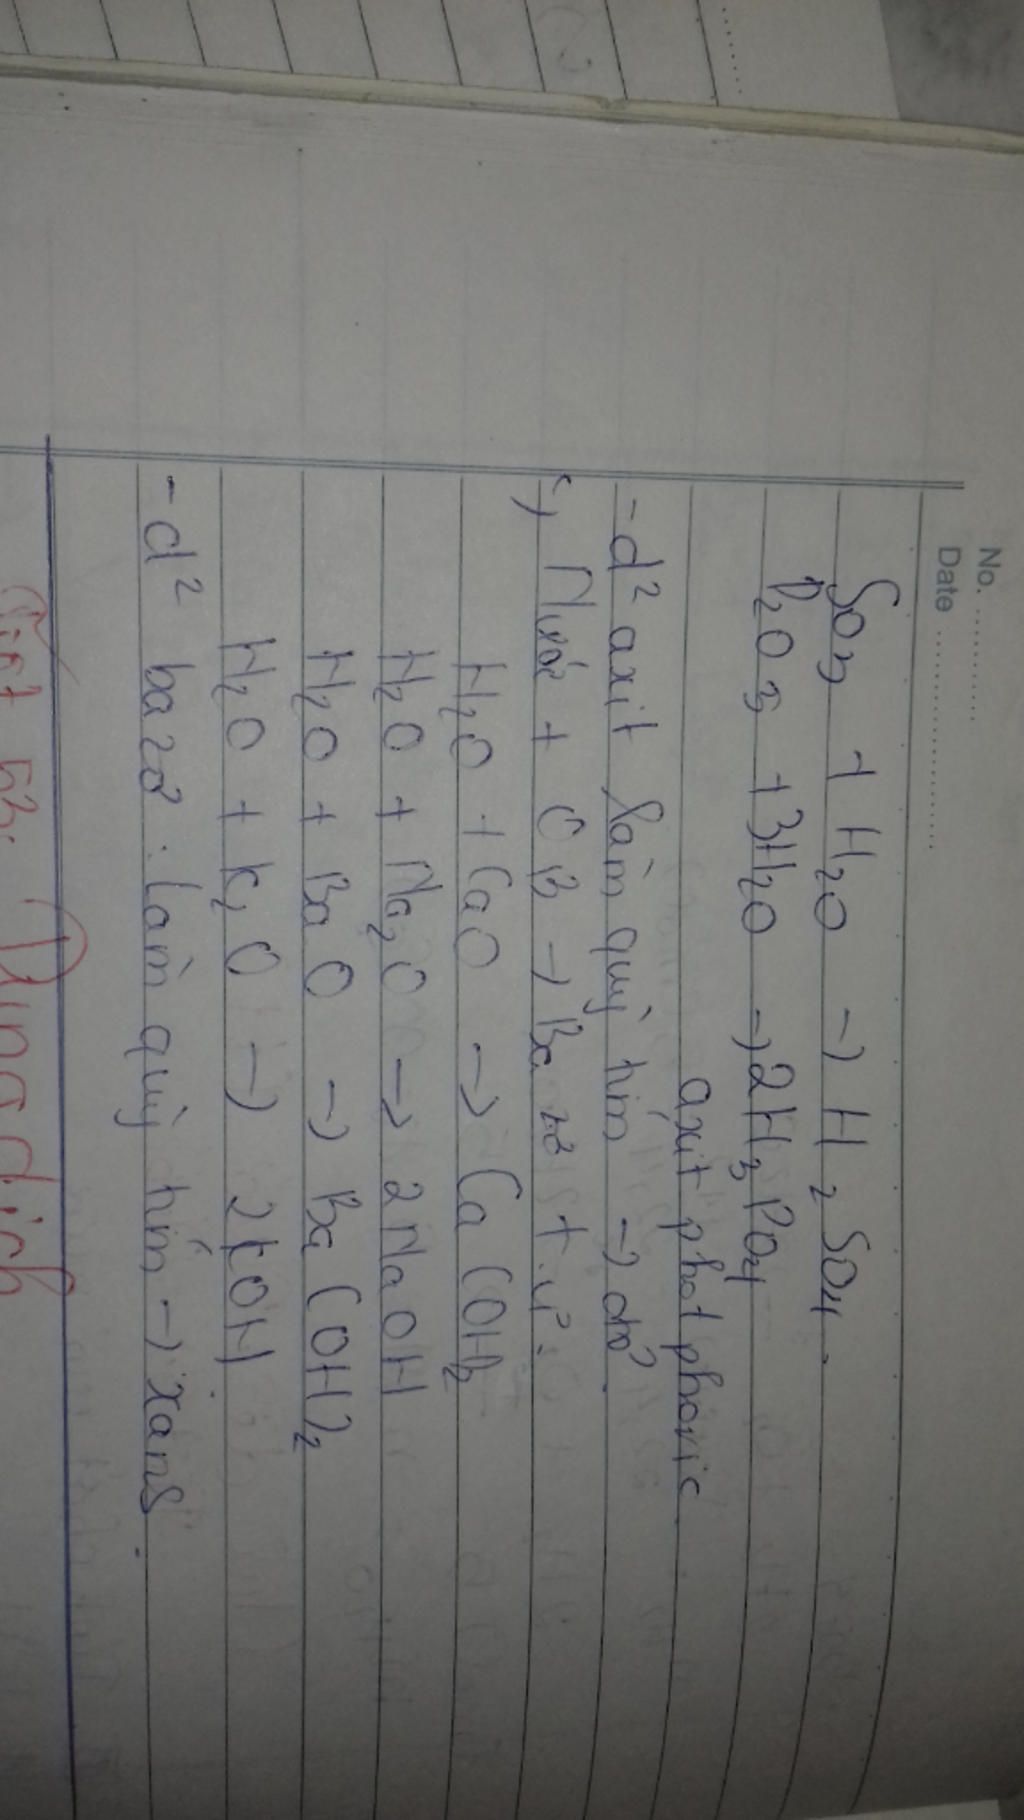 No. ............
Date .....................
SO3 + H2O → H2SO4.
P2O3 + 3H2O → 2H3PO4
axit photphoric
- d² axit làm quỳ tím → đỏ.
c, Nước + OB → Bazơ t.ư:
H2O + CaO → Ca(OH)2
H2O + Na2O → 2NaOH
H2O + BaO → Ba(OH)2
H2O + K2O → 2KOH
- d² bazơ: làm quỳ tím → xanh.
Tiết 53: Dung dịch